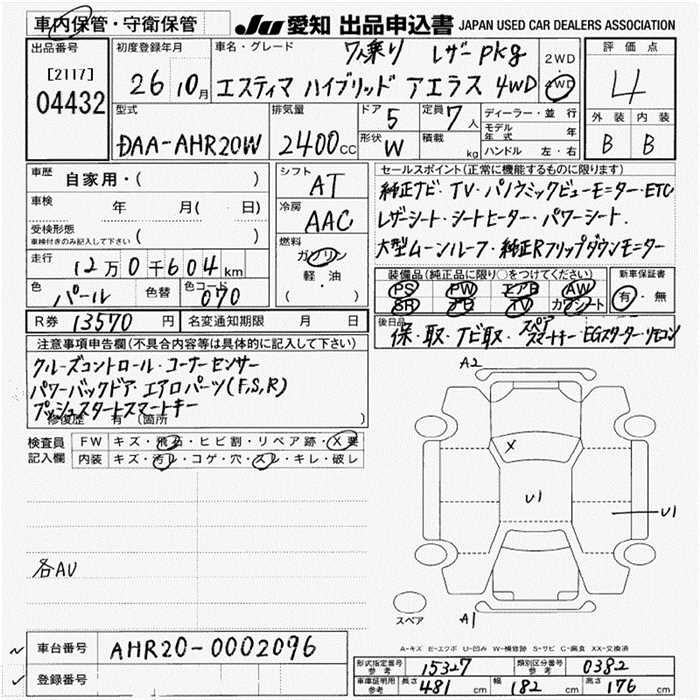 車内保管・守衛保管 JU 愛知 出品申込書 JAPAN USED CAR DEALERS ASSOCIATION
出品番号 初度登録年月 車名・グレード 7人乗り レザーpkg 2WD 評価点
[2117] 26 10月 エスティマ ハイブリッド アエラス 4WD 4WD 4
04432
型式 排気量 ドア 5 定員 7人 ディーラー・並行 外装 内装
DAA-AHR20W 2400cc 形状 W 積載 kg モデル年式 年 B B
ハンドル 左・右
車歴 自家用・( ) シフト AT セールスポイント(正常に機能するものに限り)
車検 年 月( 日) 冷房 AAC 純正ナビ・TV・パノラミックビューモニター・ETC
受検形態 ( ) レザーシート・シートヒーター・パワーシート・
車検付きのみ記入して下さい
燃料 ガソリン 大型ムーンルーフ・純正Rフリップダウンモニター
走行 12万0千604km 軽・油 ( ) 装備品(純正品に限り○をつけてください) 新車保証書
色 パール 色替 色コード 070 PS PW エアB AW 有・無
SR ナビ TV カワシート
R券 13570円 名変通知期限 月 日 後日品 保・取・ナビ取・スペアスマートキー・EGスターター・リモコン
注意事項申告欄(不具合内容等は具体的に記入して下さい)
クルーズコントロール・コーナーセンサー
パワーバックドア・エアロパーツ(F,S,R)
プッシュスタートスマートキー
修復歴 有(箇所
検査員記入欄 FW キズ・飛石・ヒビ割・リペア跡・X要
内装 キズ・汚レ・コゲ・穴・スレ・キレ・破レ
A2
X
U1
U1
各AU
スペア A1
A-キズ E-エクボ U-凹み W-補修跡 S-サビ C-腐食 XX-交換済
車台番号 AHR20-0002096
登録番号
形式指定番号 参考 15327 類別区分番号 参考 0382
車庫証明用 参考 長さ 481cm 幅 182cm 高さ 176cm